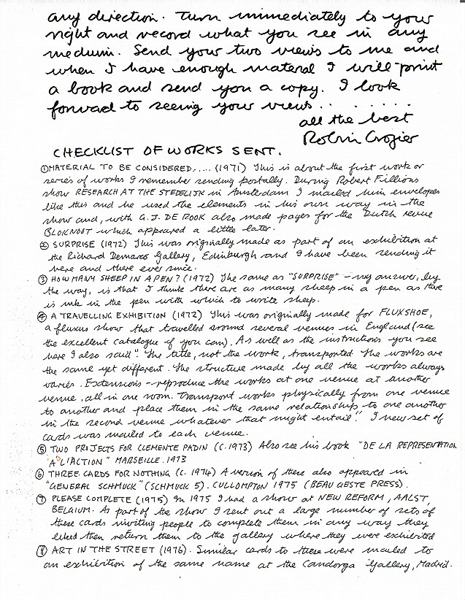 any direction. Turn immediately to your
right and record what you see in any
medium. Send your two views to me and
when I have enough material I will print
a book and send you a copy. I look
forward to seeing your views........
all the best
Robin Crozier
CHECKLIST OF WORKS SENT.
① MATERIAL TO BE CONSIDERED,.... (1971) This is about the first work or
series of works I remember sending postally. During Robert Fillious
show RESEARCH AT THE STEDELIJK in Amsterdam I mailed him envelopes
like this and he used the elements in his own way in the
show and, with G.J. DE ROOK also made pages for the Dutch revue
BLOKNOOT which appeared a little later.
② SURPRISE (1972) This was originally made as part of an exhibition at
the Richard Demarco Gallery, Edinburgh and I have been sending it
here and there ever since.
③ HOW MANY SHEEP IN A PEN? (1972) The same as "SURPRISE" – my answer, by
the way, is that I think there are as many sheep in a pen as there
is ink in the pen with which to write sheep.
④ A TRAVELLING EXHIBITION (1972) This was originally made for FLUXSHOE,
a fluxus show that travelled around several venues in England (see
the excellent catalogue if you can). As well as the instructions you see
here I also said "The title, not the work, transported. The works are
the same yet different. The structure made by all the works always
varies. Extensions – reproduce the works at one venue at another
venue, all in one room. Transport works physically from one venue
to another and place them in the same relationship to one another
in the second venue whatever that might entail" A new set of
cards was mailed to each venue.
⑤ TWO PROJECTS FOR CLEMENTE PADIN (c.1973) Also see his book "DE LA REPRESENTATION
A L'ACTION" MARSEILLE. 1973
⑥ THREE CARDS FOR NOTHING (c.1974) A version of these also appeared in
"GENERAL SCHMUCK" (SCHMUCK 5). CULLOMPTON 1975 (BEAU GESTE PRESS).
⑦ PLEASE COMPLETE (1975) In 1975 I had a show at NEW REFORM, AALST,
BELGIUM. As part of the show I sent out a large number of sets of
these cards inviting people to complete them in any way they
liked then return them to the gallery where they were exhibited
⑧ ART IN THE STREET (1976). Similar cards to these were mailed to
an exhibition of the same name at the Candorga Gallery, Madrid.